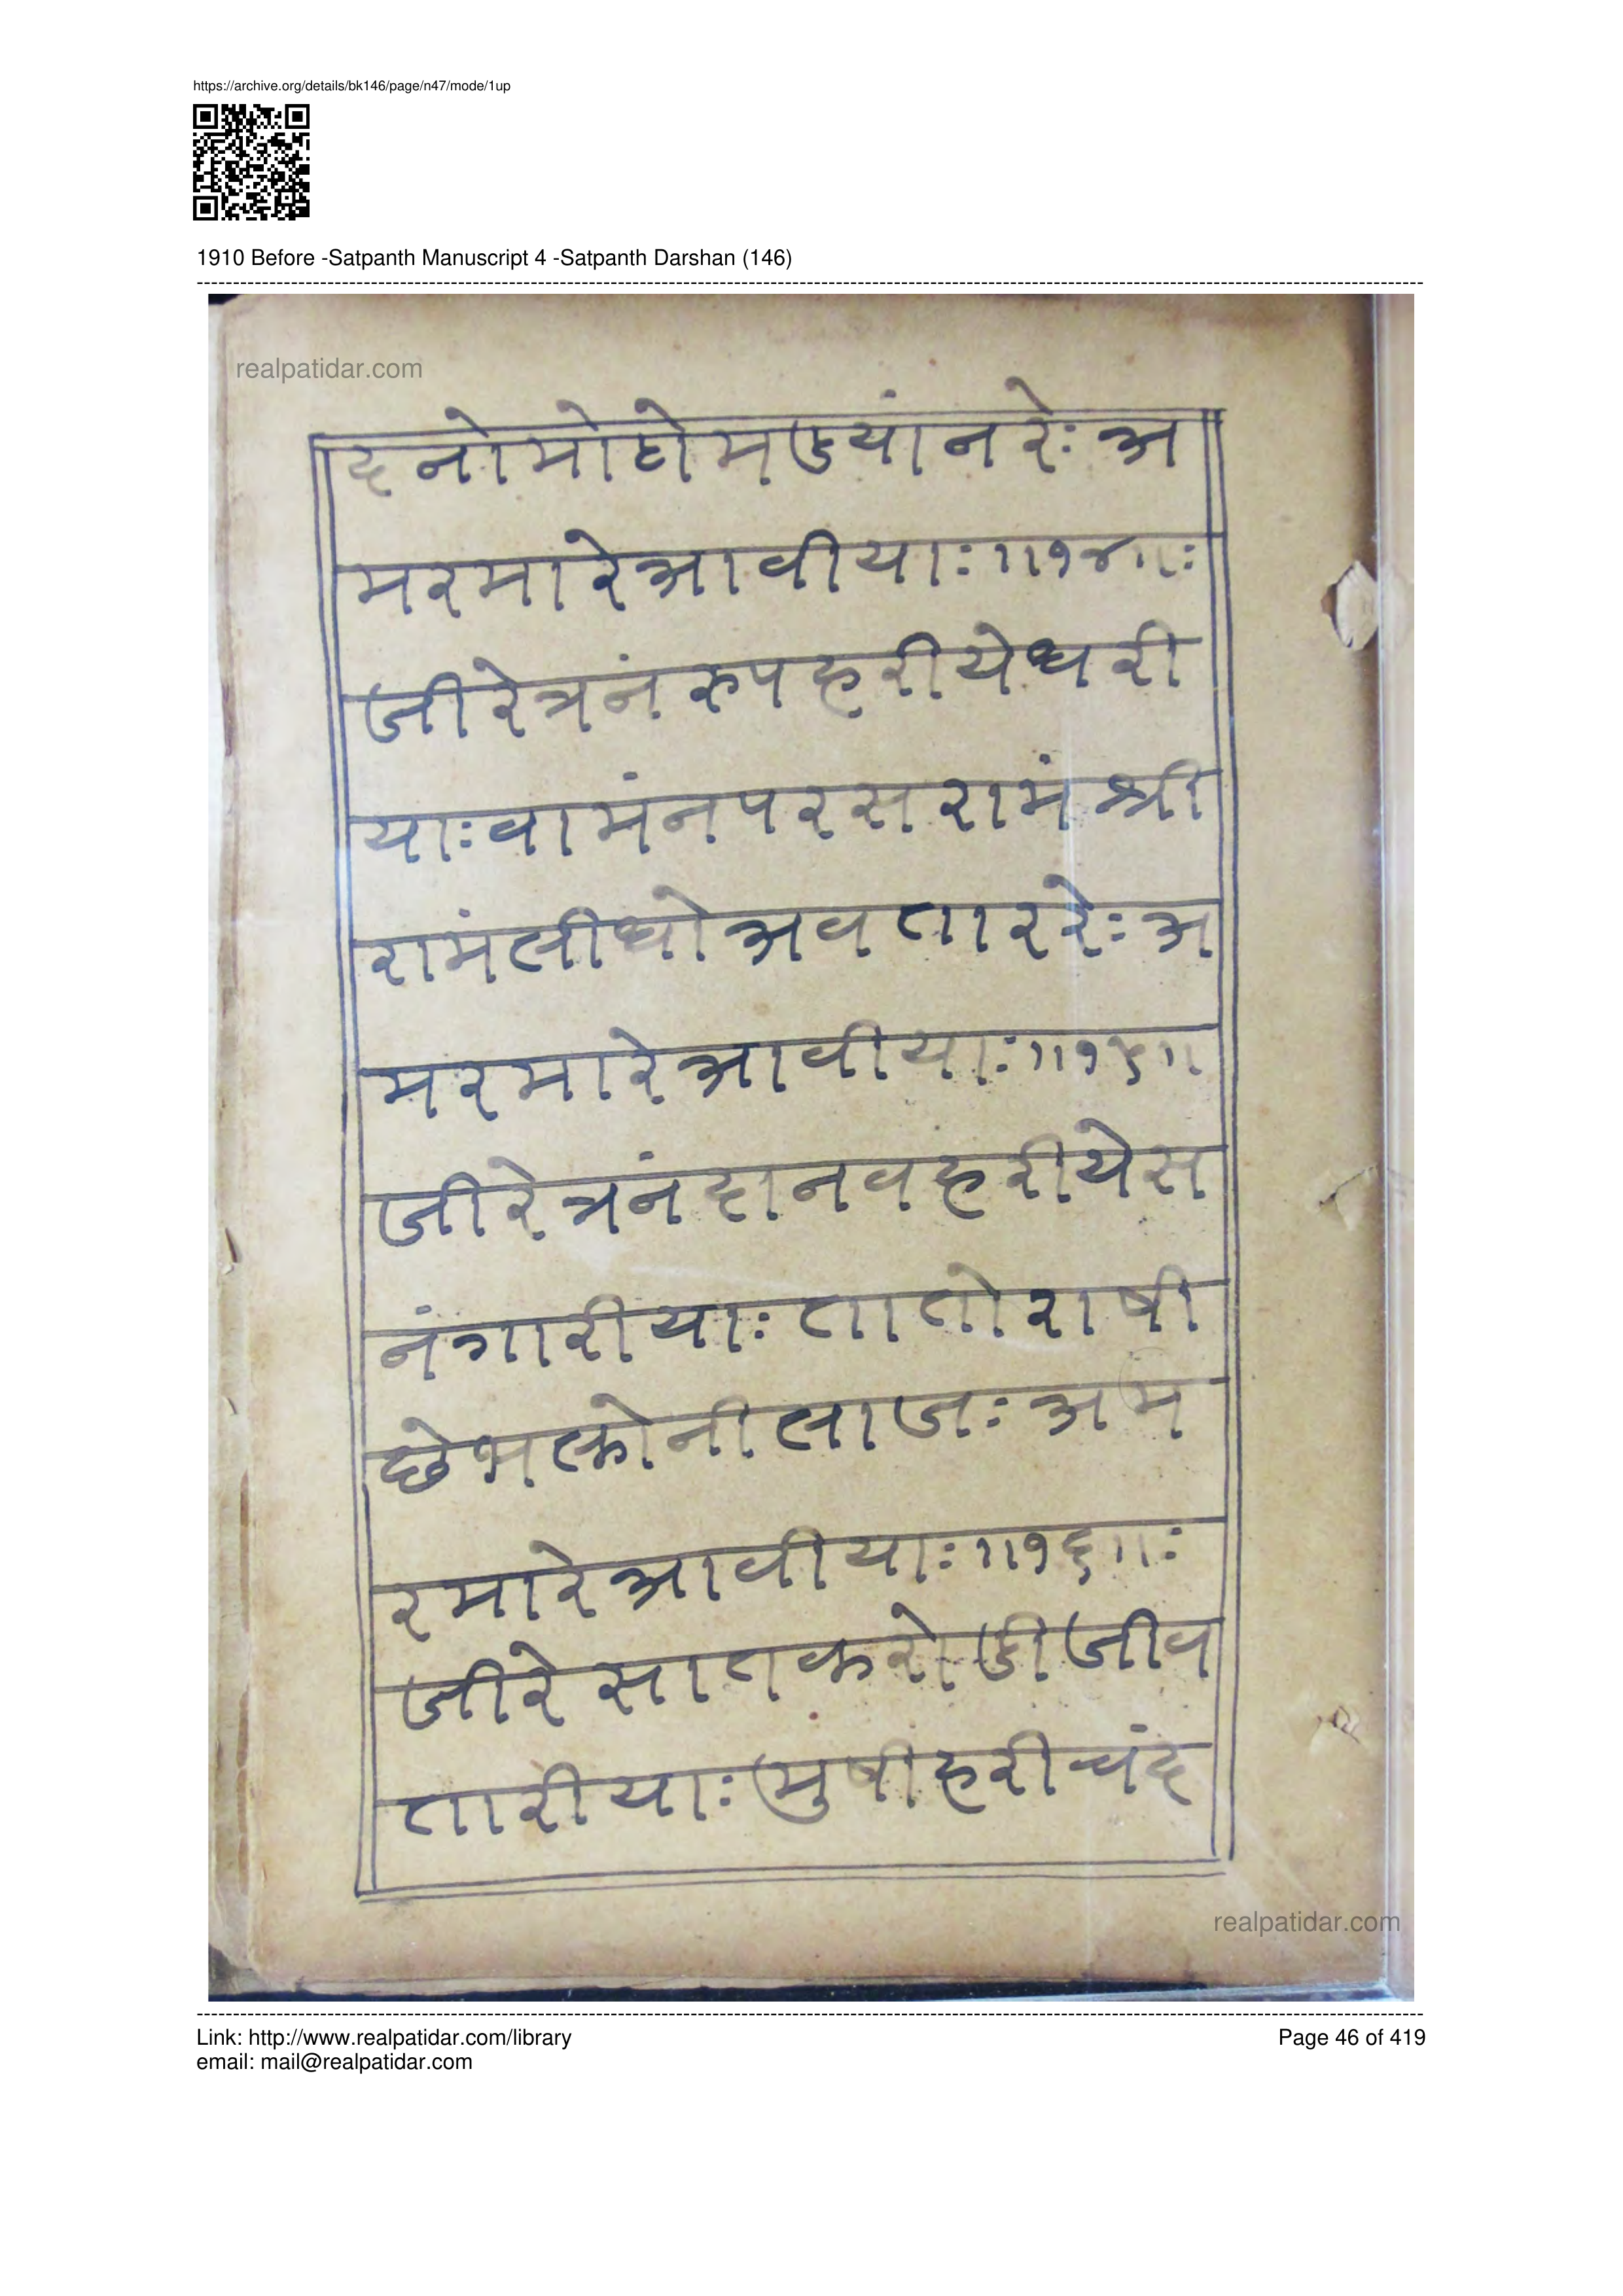 https://archive.org/details/bk146/page/n47/mode/1up
1910 Before -Satpanth Manuscript 4 -Satpanth Darshan (146)
realpatidar.com
दनोमोहोमडयांनरेः अ
मरमारेआवीयाः॥१४॥ः
जीरेत्रनंरुपहरीयेधरी
याःवामंनपरसरामंश्री
रामंलीधोअवताररेः अ
मरमारेआवीयाः॥१५॥
जीरेत्रनंदानवहरीयेस
नंगारीयाः तातोराषी
छेभक्तोनीलाजः अम
रमारेआवीयाः॥१६॥ः
जीरे सातकरोडीजीव
तारीयाः मुषीहरीचंद
realpatidar.com
Link: http://www.realpatidar.com/library
email: mail@realpatidar.com
Page 46 of 419